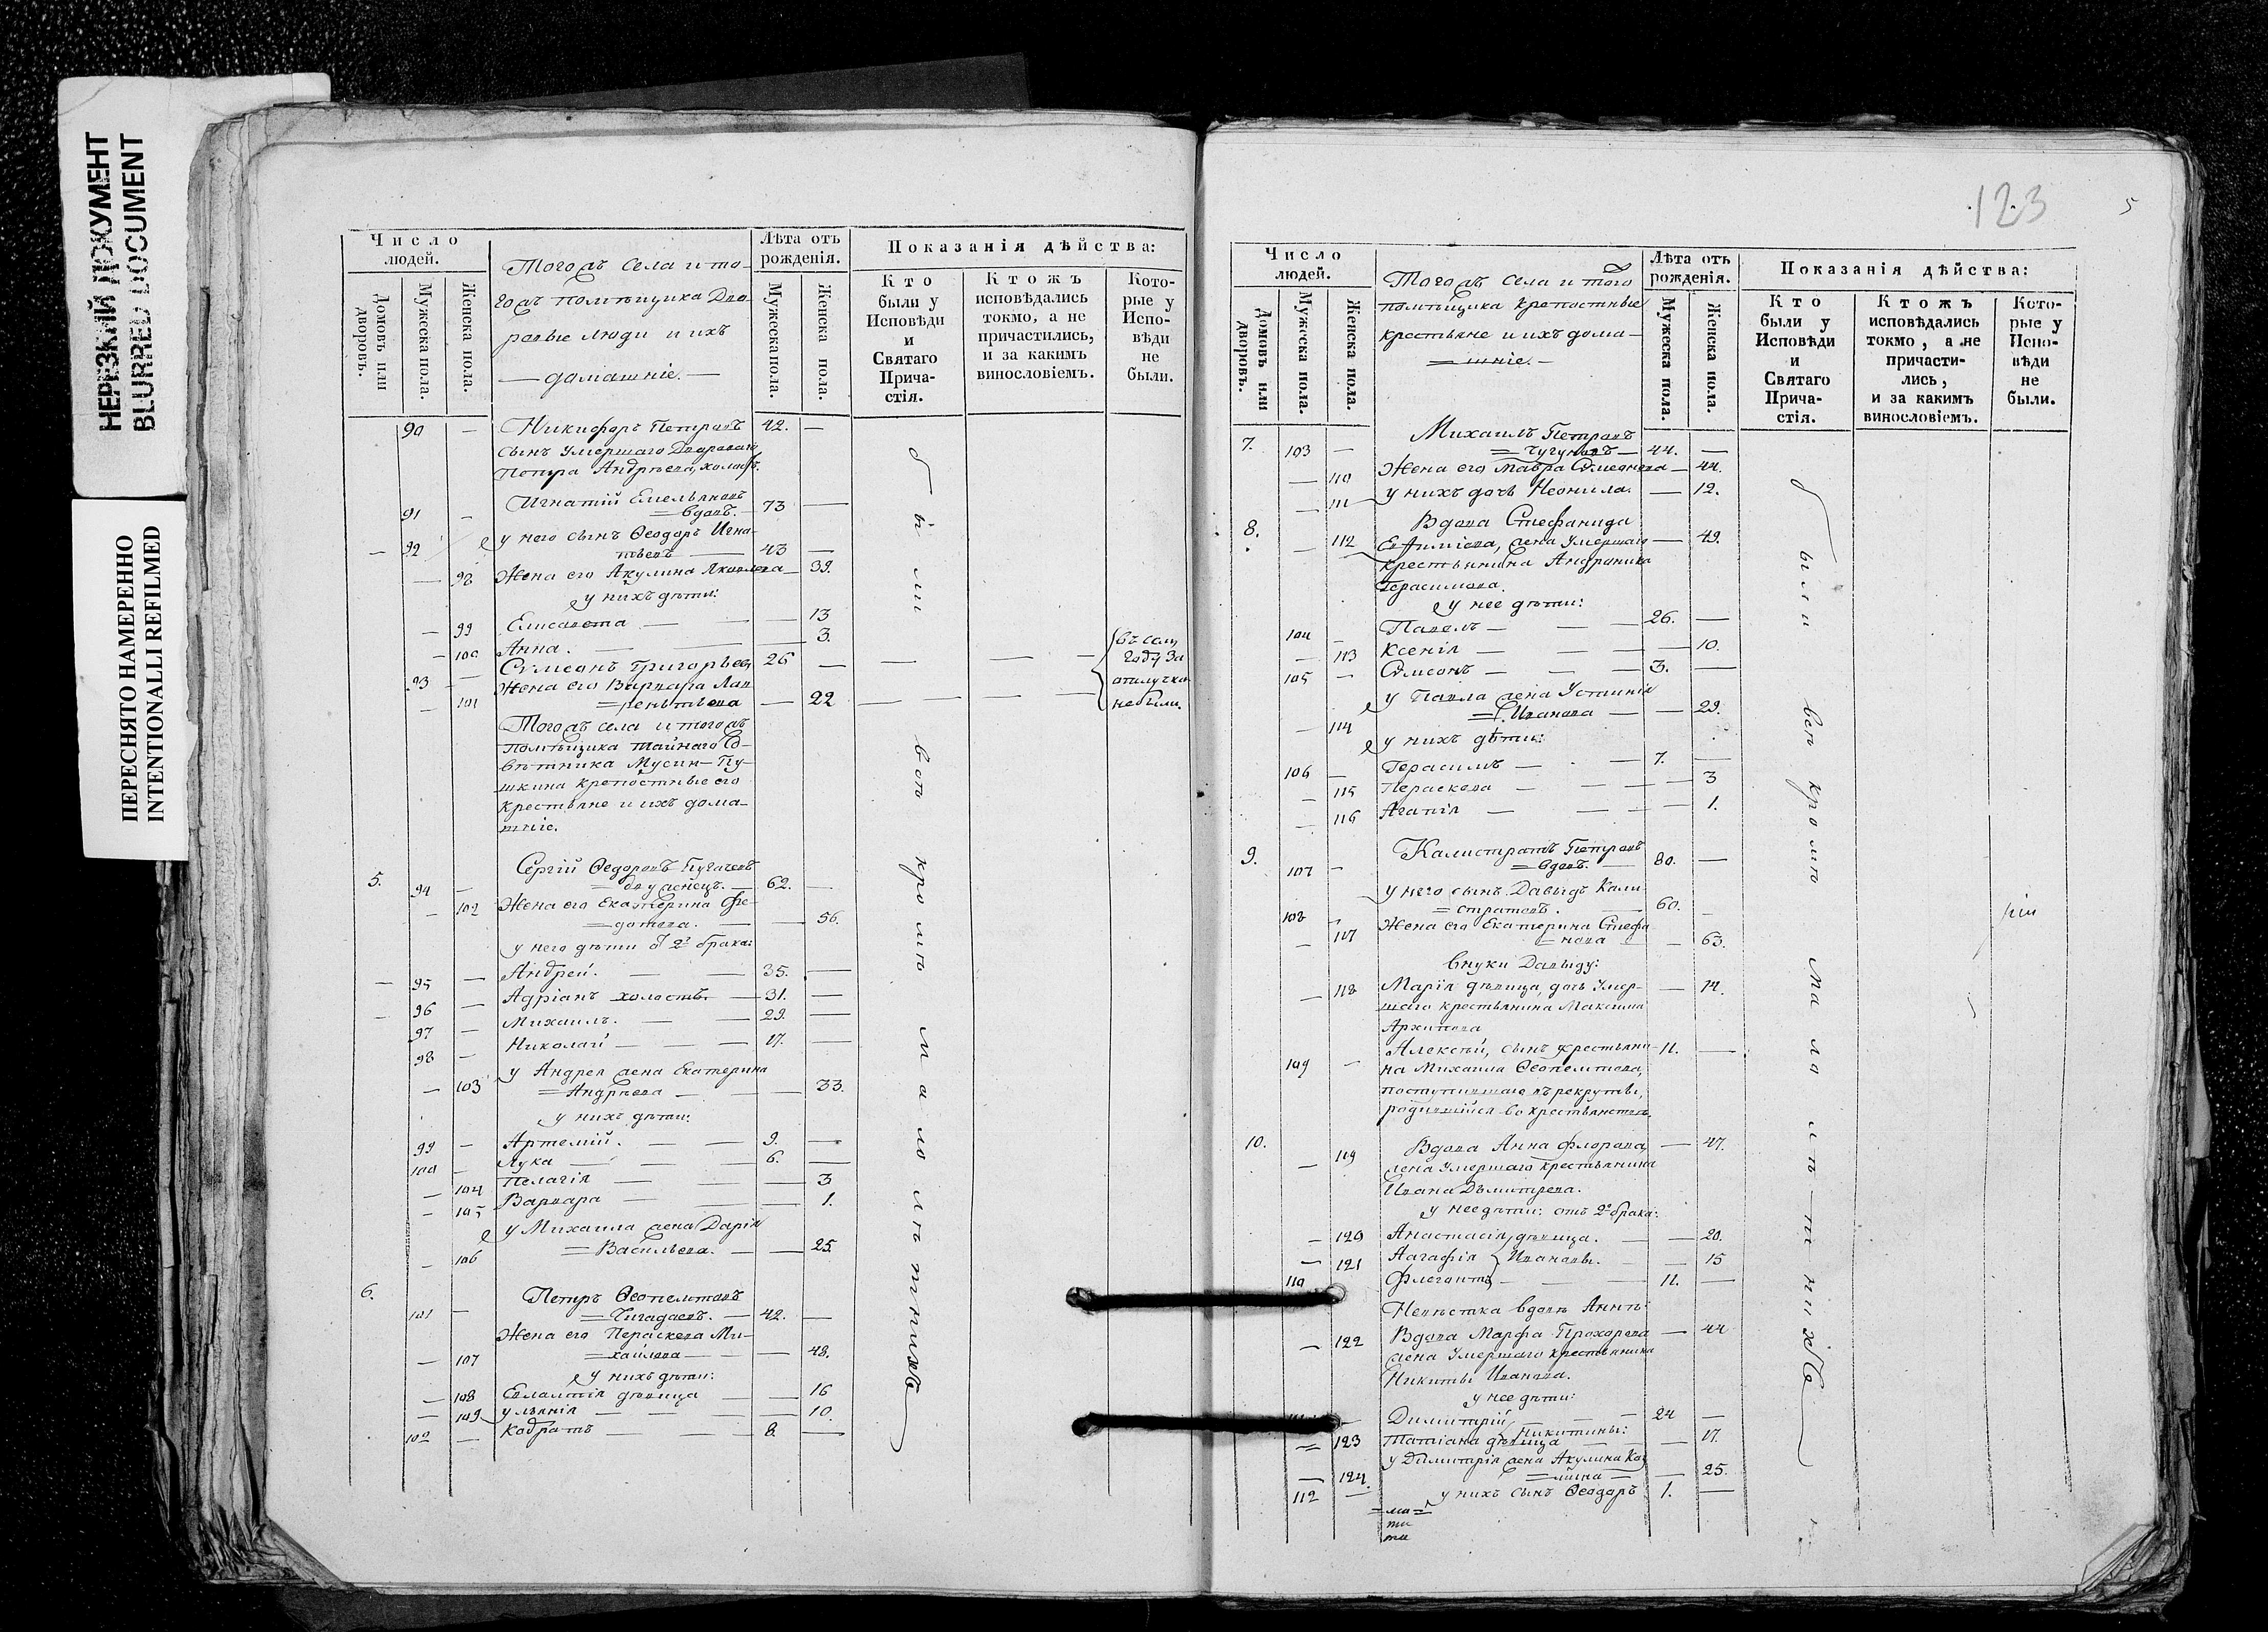 НЕРЕЗКИЙ ДОКУМЕНТ
BLURRED DOCUMENT
ПЕРЕСНЯТО НАМЕРЕННО
INTENTIONALLI REFILMED
Число людей.
Домовъ или дворовъ.
Мужеска пола.
Женска пола.
Тогожъ села и то-
гожъ помѣщика Дво-
ровые люди и ихъ
— домашніе. —
Лѣта отъ рожденія.
Мужеска пола.
Женска пола.
Показанія дѣйства:
Кто были у Исповѣди и Святаго Прича-стія.
Ктожъ исповѣдались токмо, а не причастились, и за какимъ винословіемъ.
Кото-рые у Испо-вѣди не были.
90 — Никифоръ Петровъ 42. —
сынъ умершаго Двороваго
Петра Андрѣева, холостъ.
91 — Игнатій Емельяновъ
= вдовъ. — 73 —
— 92 у него сынъ Ѳеодоръ Игна-
тьевъ — 43 —
— 98 Жена его Акулина Яковлева — 39.
у нихъ дѣти:
— 99 Елисавета — — 13
— 100 Анна. — — 3.
93 — Сѵмеонъ Григорьевъ 26 —
— 101 Жена его Варвара Лав
= рентьева — 22
въ семъ
году за
отлучкою
не были.
Тогожъ села и тогожъ
помѣщика тайнаго Со-
вѣтника Мусин-Пу-
шкина крепостные его
крестьяне и ихъ дома-
шніе.
5. 94 — Сергій Ѳедоровъ Пугачевъ
= двуженецъ. — 62. —
— 102 Жена его Екатерина Ѳе-
= дотова. — — 56.
у него дѣти отъ 2го брака:
— 95 — Андрей. — — 35. —
— 96 — Адріанъ холостъ. — 31. —
97 — Михаилъ. — — 29. —
98 — Николай — — — 17. —
— 103 у Андрея жена Екатерина
= Андрѣева — — 33.
у нихъ дѣти:
99 — Артемій. — — 9. —
100 — Лука — — — 6. —
— 104 Пелагія — — — 3
— 105 Варвара — — — 1.
— 106 у Михаила жена Дарія
= Васильева. — — 25.
6. 101 — Петръ Ѳеопемптовъ
= Чигадаевъ. — 42. —
— 107 Жена его Параскева Ми-
= хайлова — — 48.
у нихъ дѣти:
— 108 Евлампія дѣвица — — 16
— 109 Ульянія — — — 10.
102 — Кодратъ — — — 8. —
были
вси
кромѣ
малолѣтнихъ
123
5
Число людей.
Домовъ или дворовъ.
Мужеска пола.
Женска пола.
Тогожъ села и того
помѣщика крепостные
крестьяне и ихъ дома-
= шніе. —
Лѣта отъ рожденія.
Мужеска пола.
Женска пола.
Показанія дѣйства:
Кто были у Исповѣди и Святаго Прича-стія.
Ктожъ исповѣдались токмо, а не причасти-лись, и за какимъ винословіемъ.
Кото-рые у Испо-вѣди не были.
7. 103 — Михаилъ Петровъ
= Чугуновъ — 44. —
— 110 Жена его Мавра Сѵмеонова — 44.
— 111 у нихъ дочь Неонила. — 12.
8. Вдова Стефанида
— 112 Евѳиміева, жена умершаго — 49.
крестьянина Андроника
Герасимова.
у нее дѣти:
104 — Павелъ — — 26. —
— 113 Ксенія — — — 10.
105 — Сѵмеонъ — — — 3. —
у Павла жена Устинія
— 114 = Иванова — — 29.
у нихъ дѣти:
106 — Герасимъ — — 7. —
— 115 Параскева — — — 3
— 116 Агапія — — — 1.
9. 107 — Калистратъ Петровъ
= вдовъ. — 80. —
108 — у него сынъ Давыдъ Кали
= стратовъ. — 60. —
— 117 Жена его Екатерина Стефа
= нова — — 63.
внуки Давыду:
— 118 Марія дѣвица, дочь умер- — 14.
шаго крестьянина Максима
Архипова
109 — Алексѣй, сынъ крестьяни- 11. —
на Михаила Ѳеопемптова,
поступившаго въ рекруты,
родившійся во крестьянствѣ.
10. — 119 Вдова Анна Флорова, — 47.
жена умершаго крестьянина
Ивана Дьмитрева.
у нее дѣти: отъ 2го брака:
— 120 Анастасія дѣвица. — — 20.
— 121 Агафія Ивановы. — 15
110 Флегонтъ — — 11. —
Невѣстка вдовѣ Аннѣ:
— 122 Вдова Марфа Прохорова — 44
жена умершаго крестьянина
Никиты Иванова.
у нее дѣти:
— Димитрій — — 24 —
= 123 Татіана дѣвица Никитины: — 17.
у Димитрія жена Акулина Ко
— 124. = — — 25.
112 — у нихъ сынъ Ѳеодоръ 1. —
были
вси
кромѣ
малолѣтнихъ